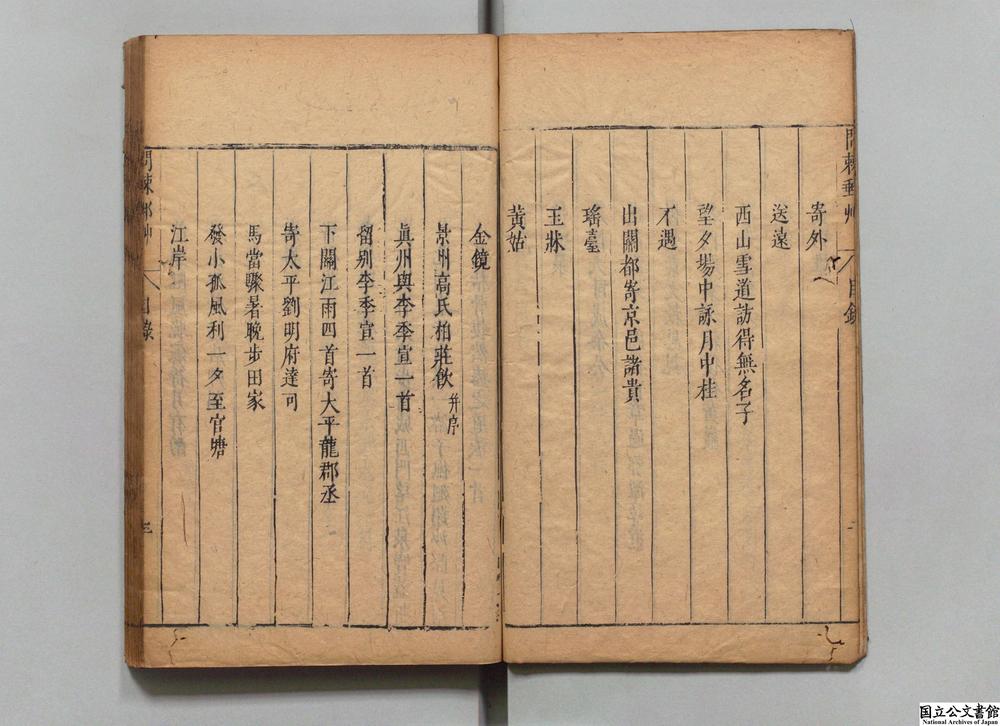 問棘郵艸 目錄
寄外
送遠
西山雪道訪得無名子
望夕場中詠月中桂
不遇
出關都寄京邑諸貴
瑤臺
玉牀
黃姑
金鏡
景州高氏柏莊飲 并序
眞州與李季宣一首
留別李季宣一首
下關江雨四首寄大平龍郡丞
寄太平劉明府達可
馬當驟暑晚步田家
發小孤風利一夕至官塘
江岸
問棘郵艸 目錄 三
国立公文書館
National Archives of Japan